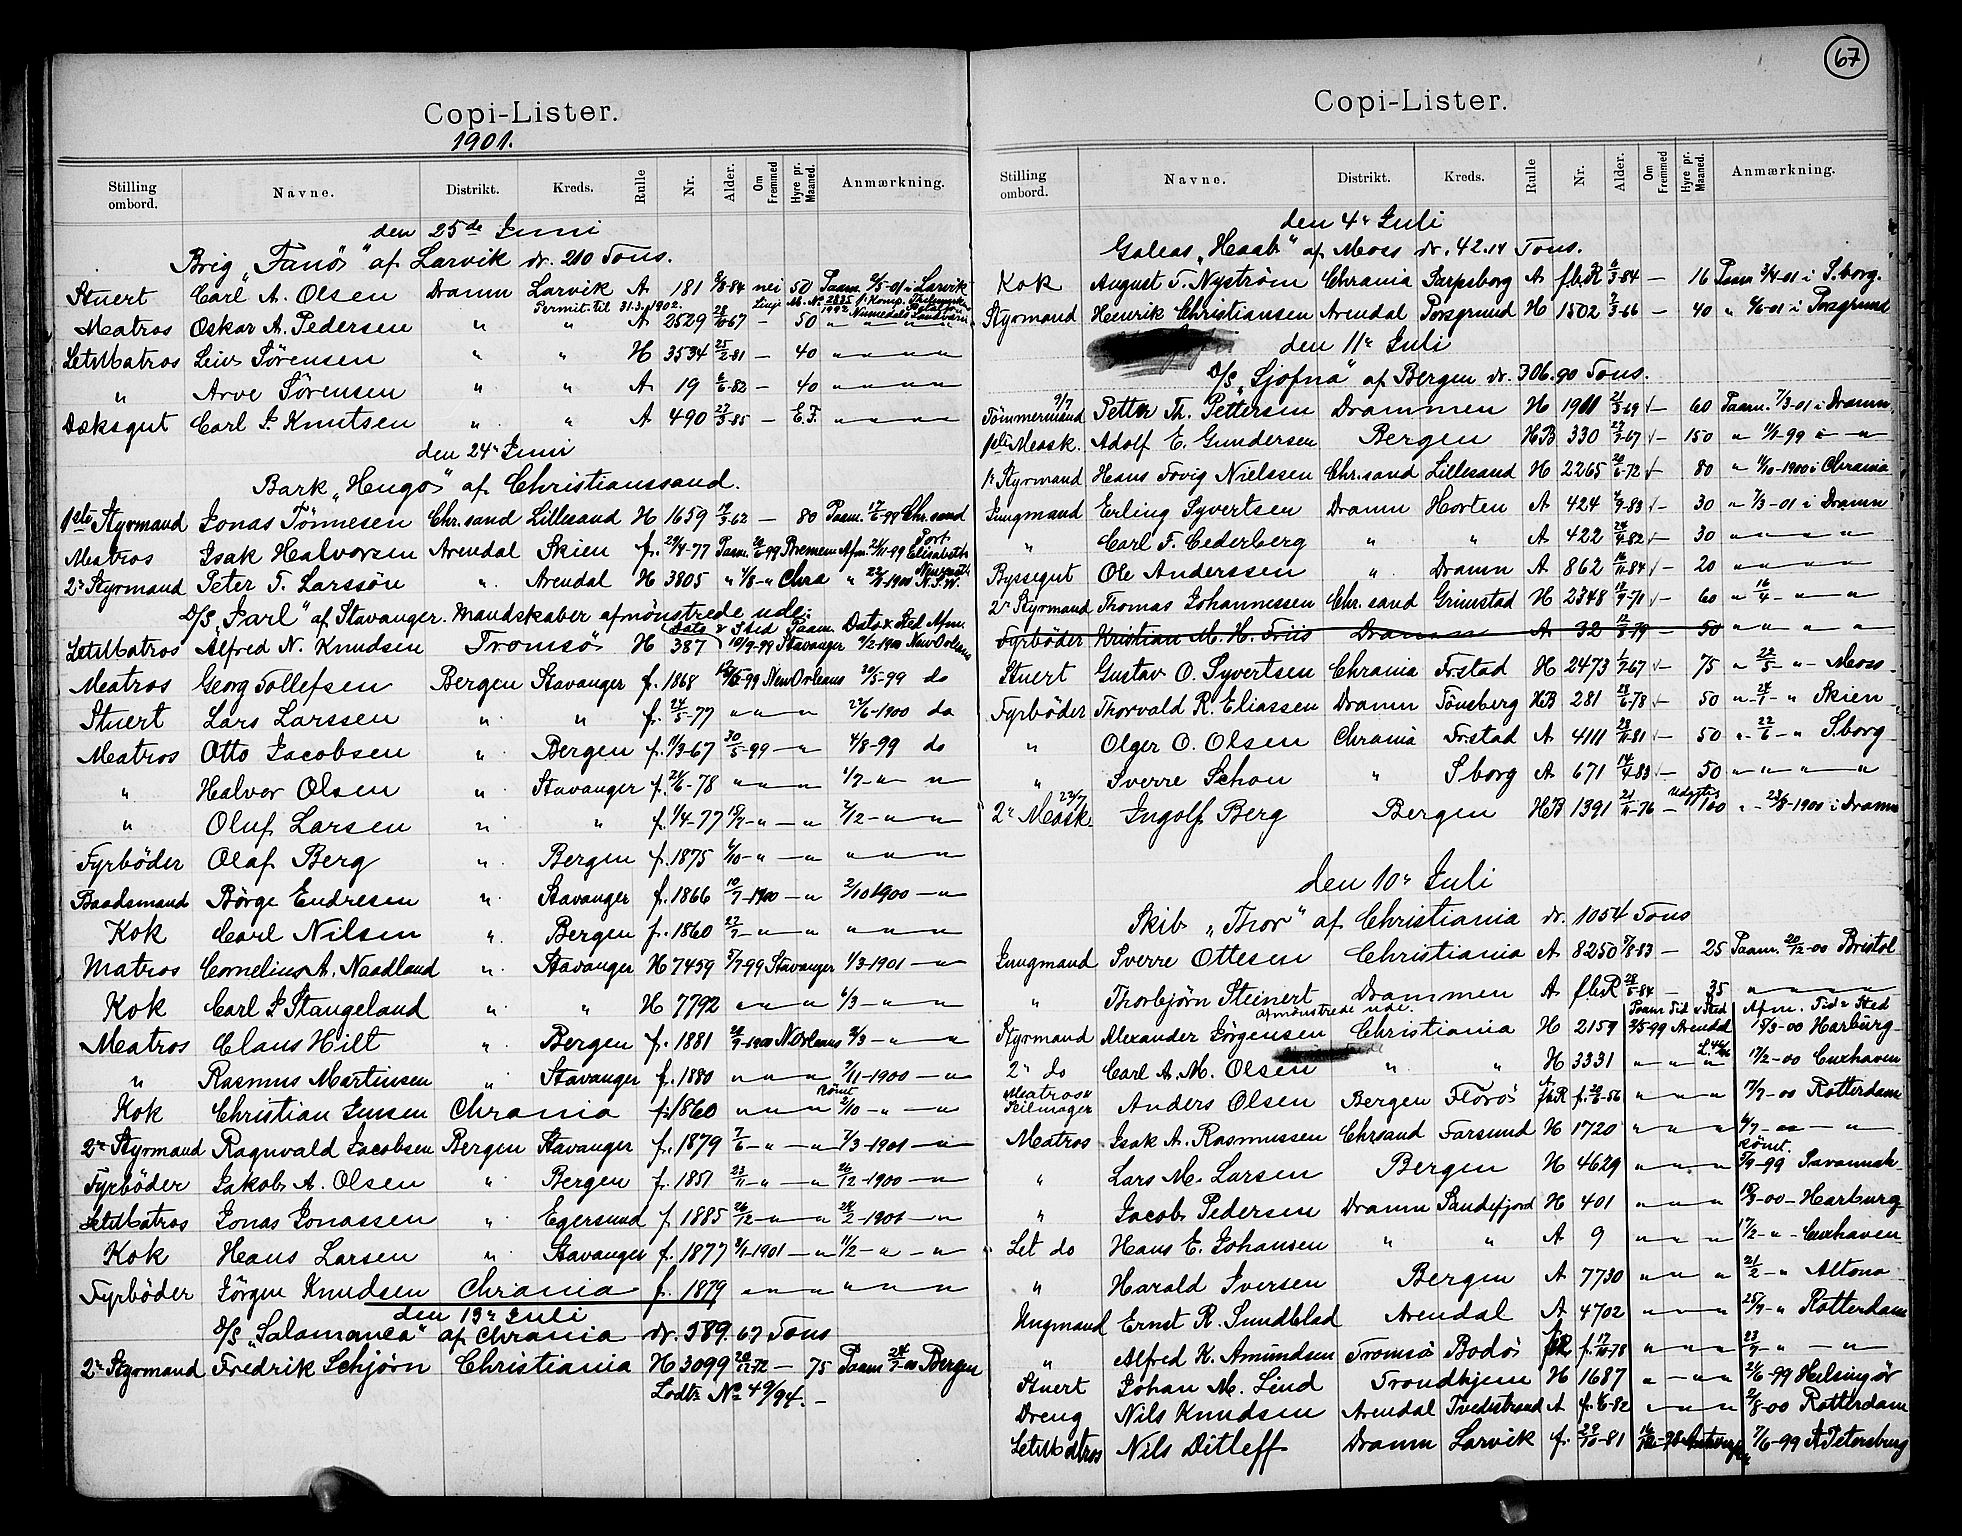 Copi-Lister.
1901.
Stilling ombord. Navne. Distrikt. Kreds. Rulle Nr. Alder. Om Fremmed Hyre pr. Maaned. Anmærkning.
den 25de Juni
Brig „Fanö" af Larvik dr. 210 Tons.
Stuert Carl A. Olsen Dramn Larvik A 181 84 nei 50 Paam. 2/5-01 i Larvik
Permit til 31.3.1902.
Matros Oskar A. Pedersen " " A 2529 28/10-67 — 50 " " " "
LetMatros Leiv Sörensen " " H 3534 25/2-81 — 40 " " " "
" Arve Sörensen " " A 19 6/6-82 — 40 " " " "
Dæksgut Carl J. Knutsen " " A 490 27/3-85 — E.F. " " " "
den 24de Juni
Bark „Hugo" af Christianssand.
1ste Styrmand Jonas Tönnesen Chr.sand Lillesand H 1659 19/3-62 — 80 Paam. 17/6-99 Chr.sand
Matros Isak Halvorsen Arendal Skien f. 29/4-77 Paam. 26/6-99 Bremen Afm. 21/11-99 Port Elisabeth
2n Styrmand Peter T. Larssön " Arendal H 3805 " 4/8-" Chra " 22/8-1900 N.S.W.
D/S „Jarl" af Stavanger. Mandskaber afmönstrede ude:
Dato & Sted Paam. Dato & Sted Afm.
LetMatros Alfred N. Knudsen Tromsö H 387 19/9-99 Stavanger 9/2-1900 New Orleans
Matros Georg Tollefsen Bergen Stavanger f. 1868 12/5-99 New Orleans 30/5-99 do
Stuert Lars Larssen " " f. 24/5-77 " " " 22/6-1900 do
Matros Otto Jacobsen " Bergen f. 9/3-67 30/5-99 — " 4/8-99 do
" Halvor Olsen " Stavanger f. 26/6-78 " " " 1/7- " "
" Oluf Larsen " " f. 1/4-77 19/7- " — " 2/12- " "
Fyrböder Olaf Berg " Bergen f. 1875 6/10- " — " " " "
Baadsmand Börge Endresen " Stavanger f. 1866 10/7-1900 — " 2/10 1900 — "
Kok Carl Nilsen " Bergen f. 1860 27/7- " — " " " "
Matros Cornelius A. Naadland " Stavanger H 7459 5/7-99 Stavanger 1/3-1901 — "
Kok Carl J Stangeland " " H 7792 " " " 6/3- " — "
Matros Claus Hilt " Bergen f. 1881 26/7-1900 N.Orleans 2/3- " — "
" Rasmus Martinsen " Stavanger f. 1880 " " " 2/11-1900 — "
Kok Christian Jensen Chrania f. 1860 " " " Römt 2/10- " — "
2n Styrmand Ragnvald Jacobsen Bergen Stavanger f. 1879 7/6- " — " 7/3-1901 — "
Fyrböder Jakob A. Olsen " Bergen f. 1851 23/11- " — " 26/12-1900 — "
LetMatros Jonas Jonassen " Egersund f. 1885 26/12- " — " 28/2-1901 — "
Kok Hans Larsen " Stavanger f. 1877 9/1-1901 — " 11/2- " — "
Fyrböder Jörgen Knudsen Chrania f. 1879 " " " " " "
den 13n Juli
D/S „Salamanca" af Chrania dr. 589.67 Tons
2n Styrmand Fredrik Schjörn Christiania H 3099 20/12-72 — 75 Paam 24/7-00 Bergen
Lodts No 49/94. —
67
Copi-Lister.
Stilling ombord. Navne. Distrikt. Kreds. Rulle Nr. Alder. Om Fremmed Hyre pr. Maaned. Anmærkning.
den 4n Juli
Galeas „Haab" af Moss dr. 42.14 Tons.
Kok August T. Nyström Chrania Sarpsborg A fbR 6/3-84 — 16 Paam 3/4-01 i S.borg.
Styrmand Henrik Christiansen Arendal Porsgrund H 1502 7/3-66 — 40 " 6/6-01 i Porsgrund
den 11n Juli
D/S „Sjofna" af Bergen dr. 306.90 Tons.
9/7
Tömmermand Petter Th. Pettersen Drammen H 1901 21/3-69 — 60 Paam. 7/3-01 i Dramn
1ste Mask. Adolf E. Gundersen Bergen HB 330 27/7-67 — 150 " 11/1-99 i — "
1n Styrmand Hans Tovig Nielssen Chr.sand Lillesand H 2265 20/6-72 — 80 " 11/10-1900 i Chrania
Jungmand Erling Syvertsen Dramn Horten A 424 7/9-83 — 30 " 7/3-01 i Dramn
" Carl F. Cederberg " " A 422 24/4-82 — 30 " " " "
Byssegut Ole Anderssen " Dramn A 862 16/11-84 — 20 " " " "
2n Styrmand Thomas Johannessen Chr.sand Grimstad H 2348 18/9-71 — 60 " 16/4- " "
Fyrböder Kristian M. H. Friis Dramn A 32 12/8-79 — 50 " " " "
Stuert Gustav O. Syvertsen Chrania Fr.stad H 2473 1/7-67 — 75 " 22/5- " Moss
Fyrböder Thorvald R. Eliassen Dramn Tönsberg HB 281 28/6-78 — 50 " 24/1- " Skien
" Olger O. Olsen Chrania Fr.stad A 4111 28/11-81 — 50 " 22/6- " S.borg
" Sverre Schou " S borg A 671 14/4-83 — 50 " " " "
22/7
2n Mask. Ingolf Berg Bergen HB 1391 21/11-76 — Udgytes 100 " 23/8-1900 i Dramn
den 10n Juli
Skib „Thor" af Christiania dr. 1054 Tons
Jungmand Sverre Ottesen Christiania A 8250 5/8-83 — 25 Paam. 20/12-00 Bristol
" Thorbjörn Steinert Drammen A fbR 28/5-84 — 35 " " "
afmönstrede ude.
Paam Tid & Sted Afm. Tid & Sted
Styrmand Alexander Jörgensen Christiania H 2159 2/5-99 Arendal 15/3-00 Harburg
2n do Carl A. M. Olsen " " H 3331 " " " 17/2-00 Cuxhaven
Matros & Seilmager Anders Olsen Bergen Florö fbR f. 26/6-56 " " " 7/7-00 Rotterdam
Matros Isak A. Rasmussen Chrsand Farsund H 1720 " " " 6/7-00 — "
Römt.
" Lars M. Larsen Bergen H 4629 " " " 5/9-99 Savannah
" Jacob Pedersen Dramn Sandefjord H 401 " " " 18/3-00 — Harburg
Let do Hans E. Johansen " " A 9 " " " 17/2- " Cuxhaven
" Harald Iversen Bergen A 7730 " " " 21/2- " Altona
Ungmand Ernst R. Sundblad Arendal A 4702 " " " 25/7- " Rotterdam
" Alfred K. Amundsen Tromsö Bodö fbR f. 17/10-78 " " " 23/7- " "
Stuert Johan M. Lind Trondhjem H 1687 " " " 26/6-99 Helsingör
Dreng Nils Knudsen Arendal Tvedestrand A f. 1/6-82 " " " 2/8-00 Rotterdam
LetMatros Nils Ditleff Dramn Larvik f. 29/10-81 Antwerpen 7/6-99 St Petersburg